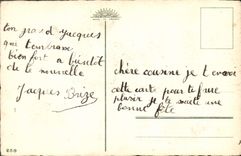 ton gros d Jacques
que t'embrasse
bien fort a bientôt
de le nouvelle
Jacques Brize
chère cousine je t'envoi
cette carte pour te faire
plaisir je te souhaite une
bonne fête